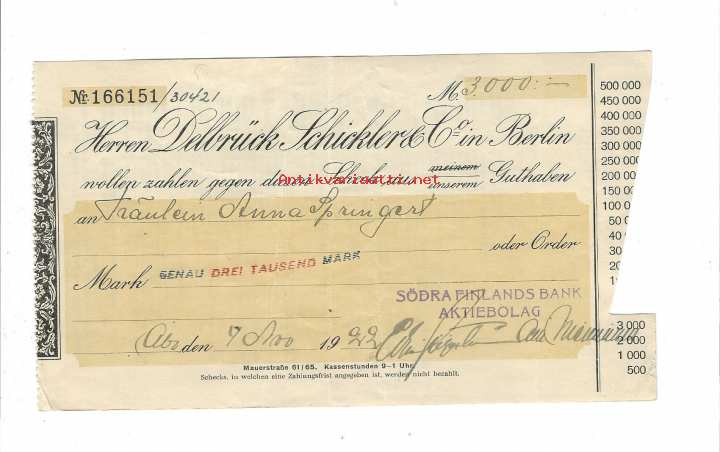 Nr. 166151/30421 M. 3000:-
Herren Delbrück Schickler & Co in Berlin
wollen zahlen gegen diesen Scheck aus meinem unserem Guthaben
Antikvariaatti.net
an Fräulein Anna Springert
oder Order
Mark GENAU DREI TAUSEND MARK
SÖDRA FINLANDS BANK
AKTIEBOLAG
Åbo den 7 Nov 1922
Mauerstraße 61/65. Kassenstunden 9–1 Uhr.
Schecks, in welchen eine Zahlungsfrist angegeben ist, werden nicht bezahlt.
500 000
450 000
400 000
350 000
300 000
250 000
200 000
150 000
100 000
50 000
40 000
30 000
20
10
3 000
2 000
1 000
500